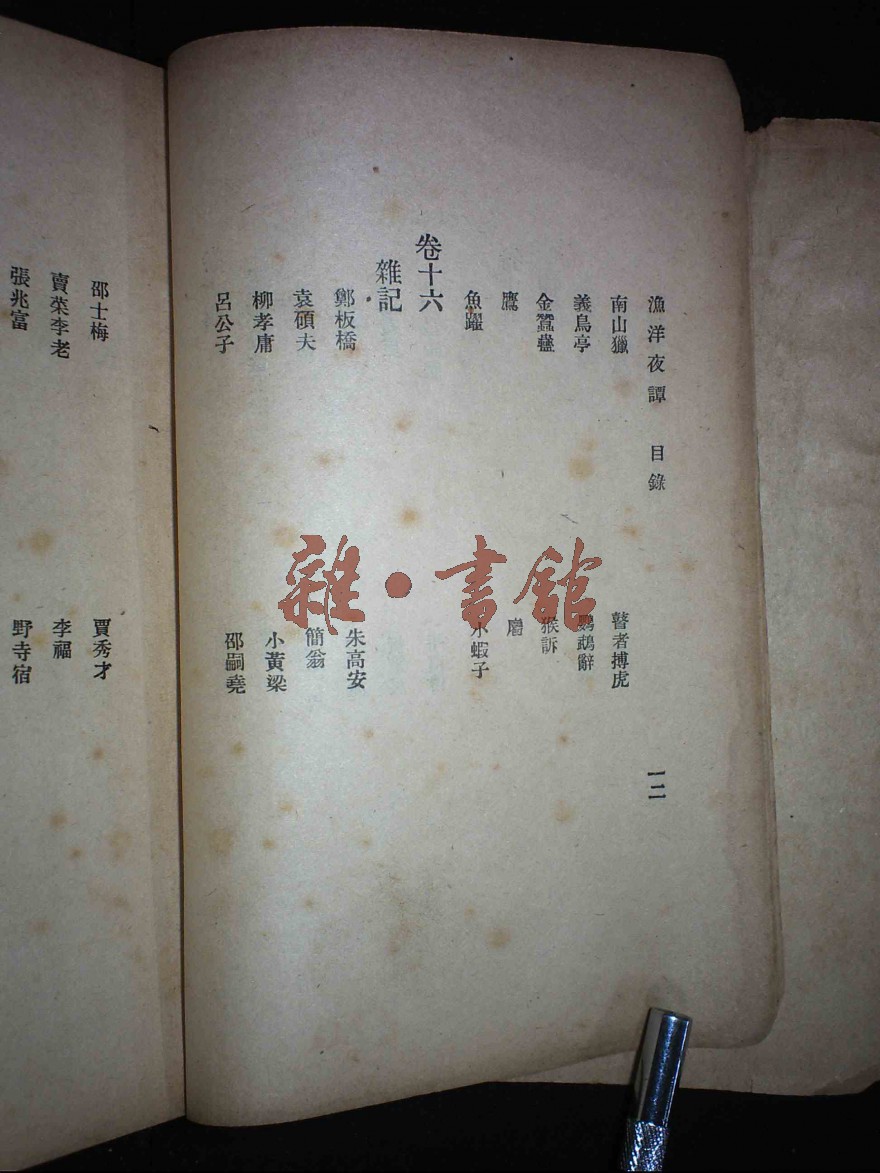 漁洋夜譚 目錄 一二
南山獵 瞽者搏虎
義鳥亭 鸚鵡辭
金蠶蠱 猴訴
鷹
魚躍 小蝦子
卷十六
雜記
鄭板橋 朱高安
袁碩夫 簡翁
柳孝庸 小黃梁
呂公子 邵嗣堯
邵士梅 賈秀才
賣菜李老 李福
張兆富 野寺宿
雜·書館